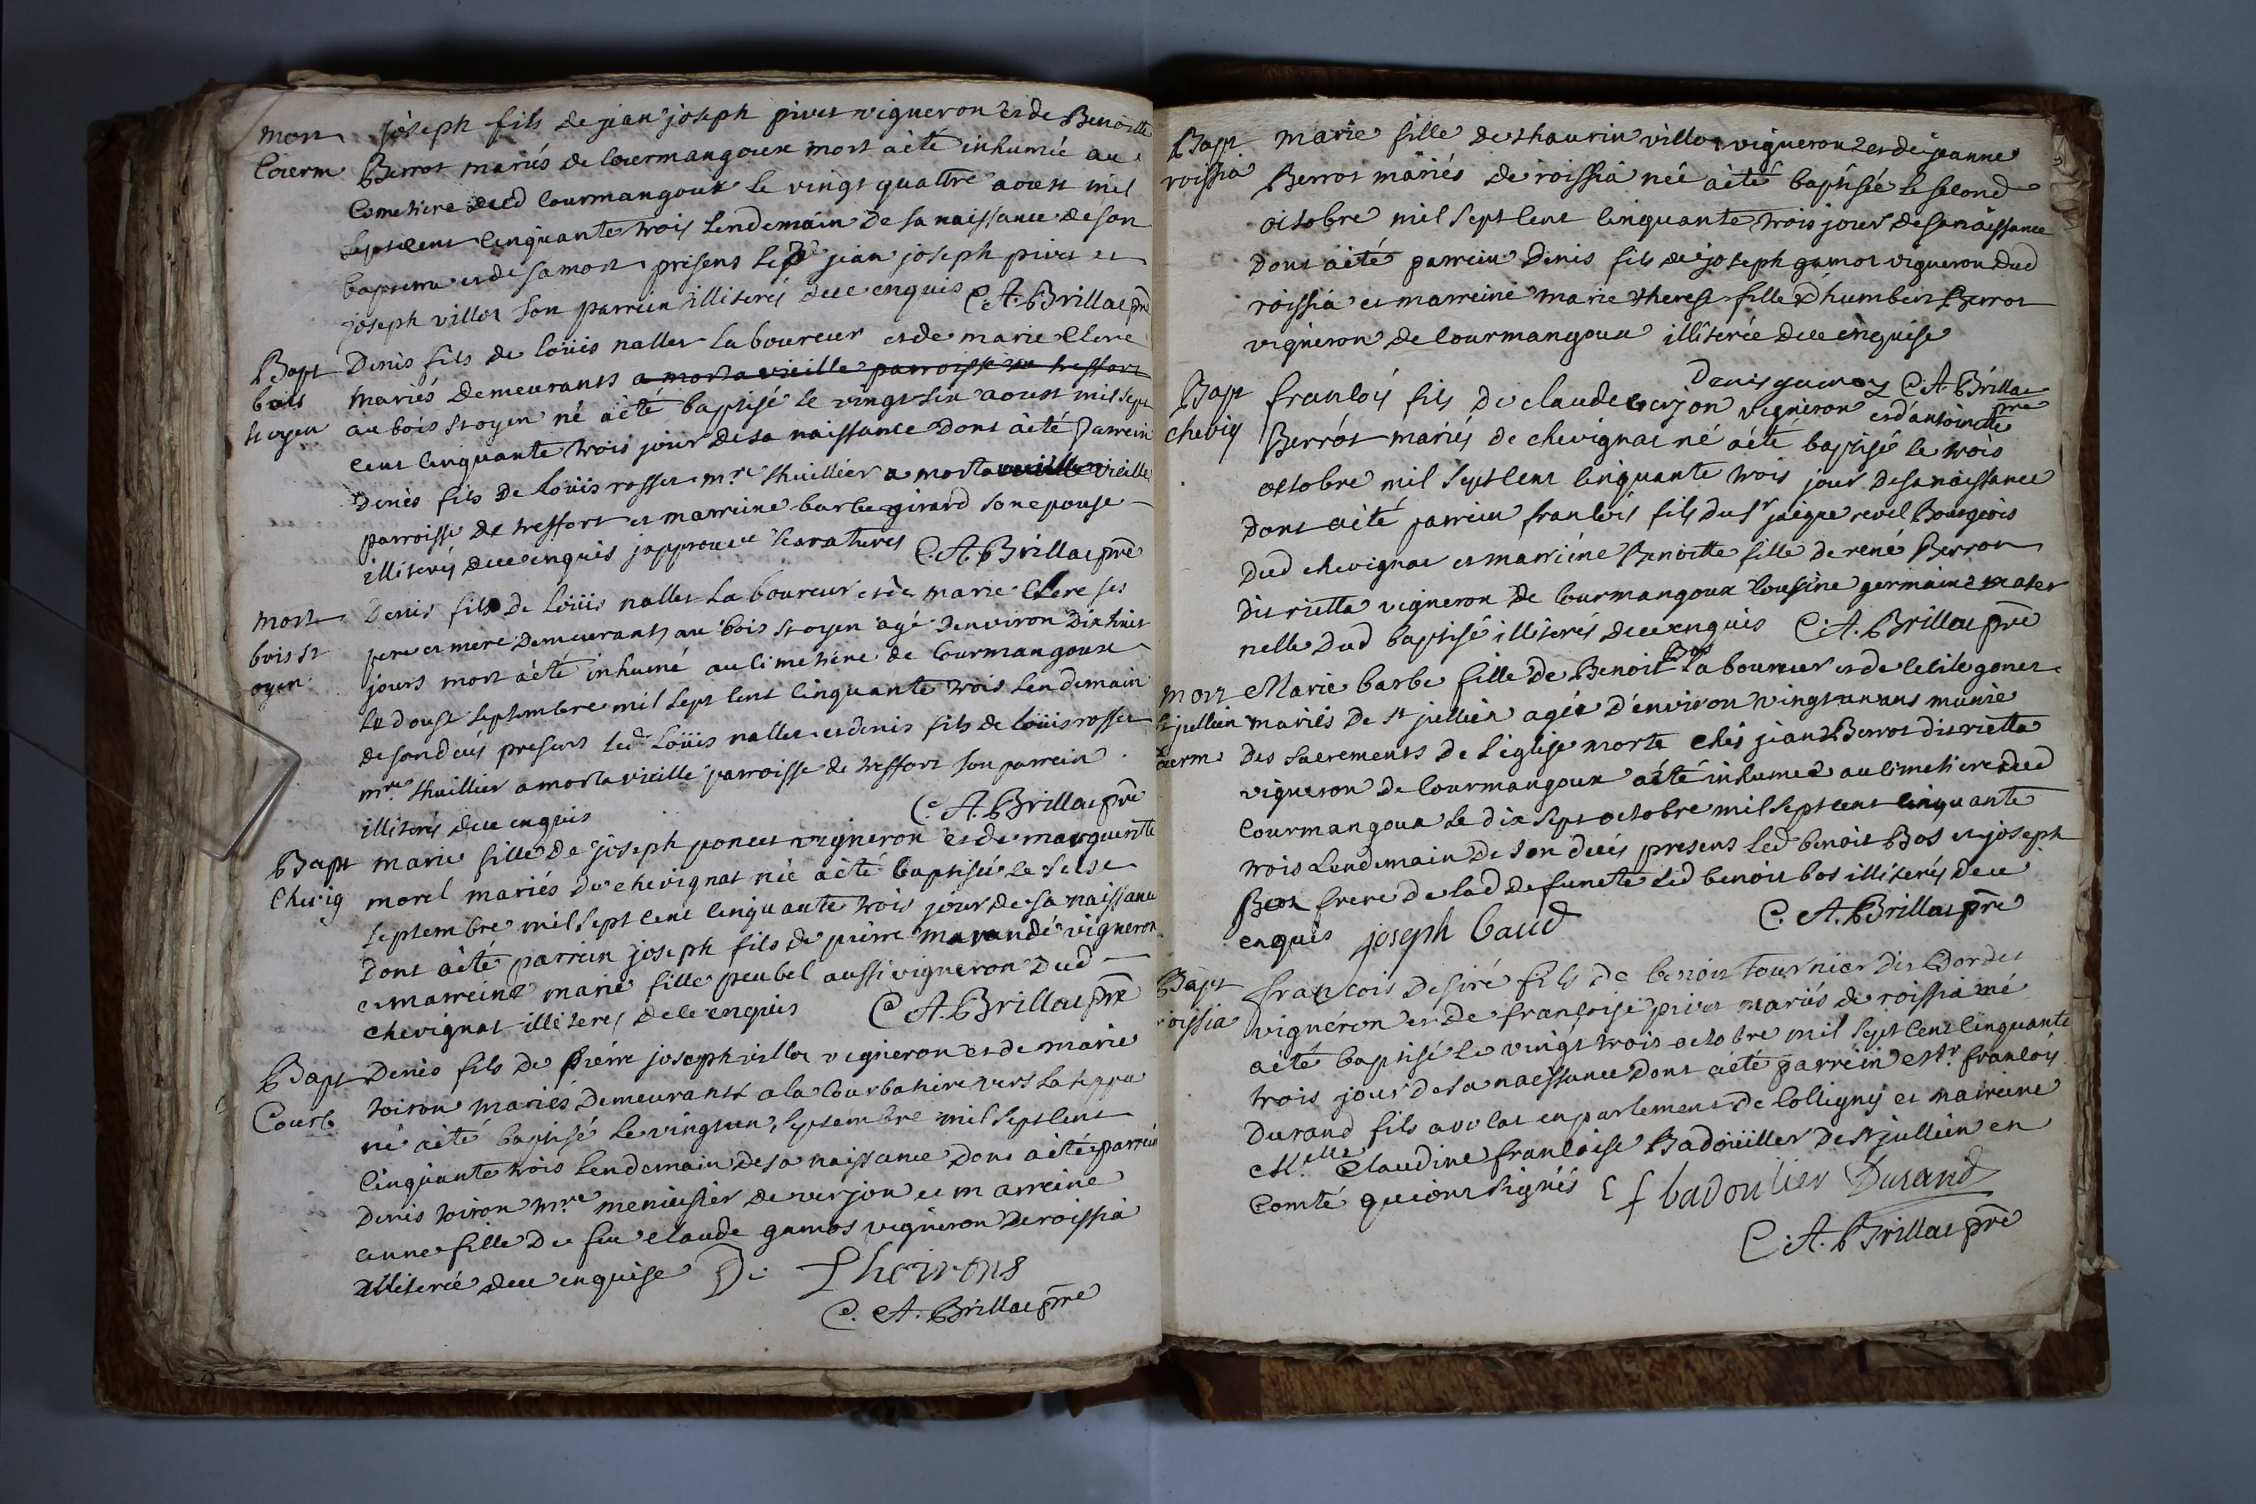 mort joseph fils de jean joseph pivet vigneron et de Benoitte
Courm Berrot mariés de Courmangoux mort a été inhumée au
Cometiere dud Courmangoux le vingt quattre aoust mil
sept cent cinquante trois lendemain de sa naissance de son
bapteme et de sa mort presens led jean joseph pivet et
joseph villot son parrein illiterés deue enquis C. A. Brillat ptre
Bapt Denis fils de loüis nallet laboureur et de marie Clere
bois mariés demeurants a morta vieille parroisse de treffort
st oyen au bois st oyen né a été baptisé le vingt six aoust mil sept
cent cinquante trois jour de sa naissance dont a été parrein
Denis fils de loüis rosset mre thuillier a morta vieille
parroisse de treffort et marreine barbe girard son epouse
illiterés deue enquis japprouve le ratures C. A. Brillat ptre
mort Denis fils de loüis nallet laboureur et de marie Clere ses
bois st pere et mere demeurants au bois st oyen agé denviron dix huit
oyen jours mort a été inhumé au cimetiére de Courmangoux
le douse septembre mil sept cent cinquante trois lendemain
de son decés presens led loüis nallet et denis fils de loüis rosset
mre thuillier a morta vieille parroisse de treffort son parrein
illiterés deue enquis C. A. Brillat ptre
Bapt marie fille de joseph poncet vigneron et de margueritte
Chevig morel mariés de chevignat née a été baptisée le seise
septembre mil sept cent cinquante trois jour de sa naissance
dont a été parrein joseph fils de pierre marandé vigneron
et marreine marie fille peubel aussi vigneron dud
chevignat illiteres de ce enquis C. A. Brillat ptre
Bapt Denis fils de piérre joseph villot vigneron et de marie
Courb toiron mariés demeurants a la Courbatiere vers la
né a été baptisé le vingt un septembre mil sept cent
cinquante trois lendemain de sa naissance dont a été parrein
Denis toiron mre menuisier de verjon et marreine
anne fille de feu claude gamos vigneron de roissia
illiterée deue enquise D. Thoirons
C. A. Brillat ptre
Bapt marie fille de thaurin villot vigneron et de jeanne
roissia Berrot mariés de roissia née a été baptisée le second
octobre mil sept cent cinquante trois jour de sa naissance
dont a été parrein Denis fils de joseph gamos vigneron dud
roissia et marreine marie therese fille d humbert Berrot
vigneron de Courmangoux illiterée deue enquise
Denis gamos C. A. Brillat ptre
Bapt françois fils de claude verjon vigneron et d'antoinette
chevig Berrot mariés de chevignat né a été baptisé le trois
octobre mil sept cent cinquante trois jour de sa naissance
dont a été parrein françois fils du sr jacque revel Bourgeois
dud chevignat et marriéne Benoitte fille de rené Berrot
dit rietta vigneron de Courmangoux Cousine germaine mater
nelle dud baptisé illiterés deue enquis C. A. Brillat ptre
mort Marie barbe fille de Benoit Bos laboureur et de Cecile gonet
st jullien mariés de st jullien agée d'environ vingt un ans munie
Courm des sacrements de l'eglise morte chés jean Berrot dit rietta
vigneron de Courmangoux a été inhumée au cimetiere dud
Courmangoux le dix sept octobre mil sept cent cinquante
trois lendemain de son decés presens led benoit Bos et joseph
Bos frere de lad defuncte led benoit bos illiterés deue
enquis joseph baud C. A. Brillat ptre
Bapt françois desiré fils de benoit tournier dit dordet
roissia vignéron et de françoise pivet mariés de roissia né
a été baptisé le vingt trois octobre mil sept cent cinquante
trois jour de sa naissance dont a été parrein Mr. françois
Durand fils avocat en parlement de Colligny et marreine
Melle Claudine françoise Badoüiller de st jullien en
Comté qui ont signés C f badoulier Durand
C. A. Brillat ptre